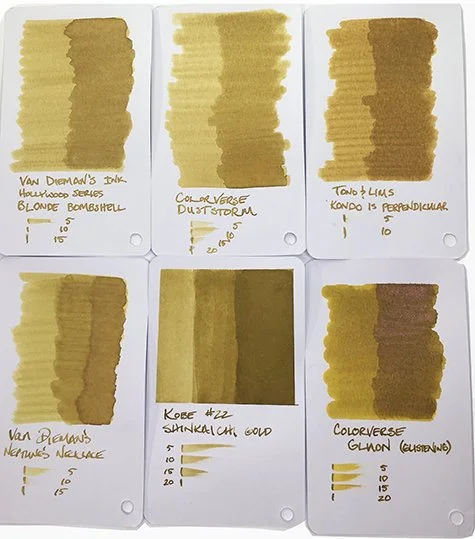 VAN DIEMAN'S INK
HOLLYWOOD SERIES
BLONDE BOMBSHELL
5
10
15
COLORVERSE
DUSTSTORM
5
10
15
20
TONO & LIMS
KONDO IS PERPENDICULAR
5
10
VAN DIEMAN'S
NEPTUNE'S NECKLACE
5
10
15
KOBE #22
SHINKAICHI GOLD
5
10
15
20
COLORVERSE
GLUON (GLISTENING)
5
10
15
20